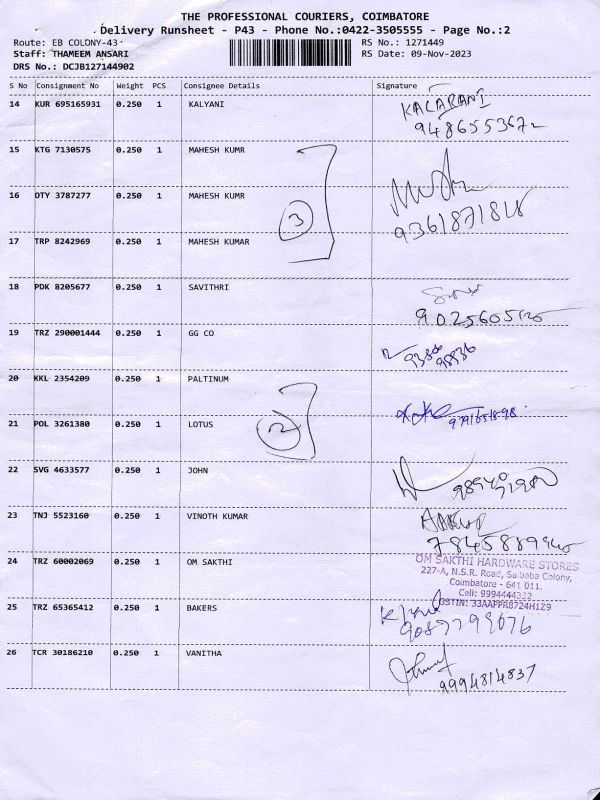 THE PROFESSIONAL COURIERS, COIMBATORE
Delivery Runsheet - P43 - Phone No.:0422-3505555 - Page No.:2
Route: EB COLONY-43 RS No.: 1271449
Staff: THAMEEM ANSARI RS Date: 09-Nov-2023
DRS No.: DCJB127144902
S No Consignment No Weight PCS Consignee Details Signature
14 KUR 695165931 0.250 1 KALYANI KALARANI
15 KTG 7130575 0.250 1 MAHESH KUMR
16 OTY 3787277 0.250 1 MAHESH KUMR
3
17 TRP 8242969 0.250 1 MAHESH KUMAR
18 PDK 8205677 0.250 1 SAVITHRI
19 TRZ 290001444 0.250 1 GG CO
20 KKL 2354209 0.250 1 PALTINUM
21 POL 3261380 0.250 1 LOTUS
2
22 SVG 4633577 0.250 1 JOHN
23 TNJ 5523160 0.250 1 VINOTH KUMAR
24 TRZ 60002069 0.250 1 OM SAKTHI
OM SAKTHI HARDWARE STORES
227-A, N.S.R. Road, Saibaba Colony,
Coimbatore - 641 011.
Cell: 9994444332
25 TRZ 65365412 0.250 1 BAKERS
26 TCR 30186210 0.250 1 VANITHA
9994814837